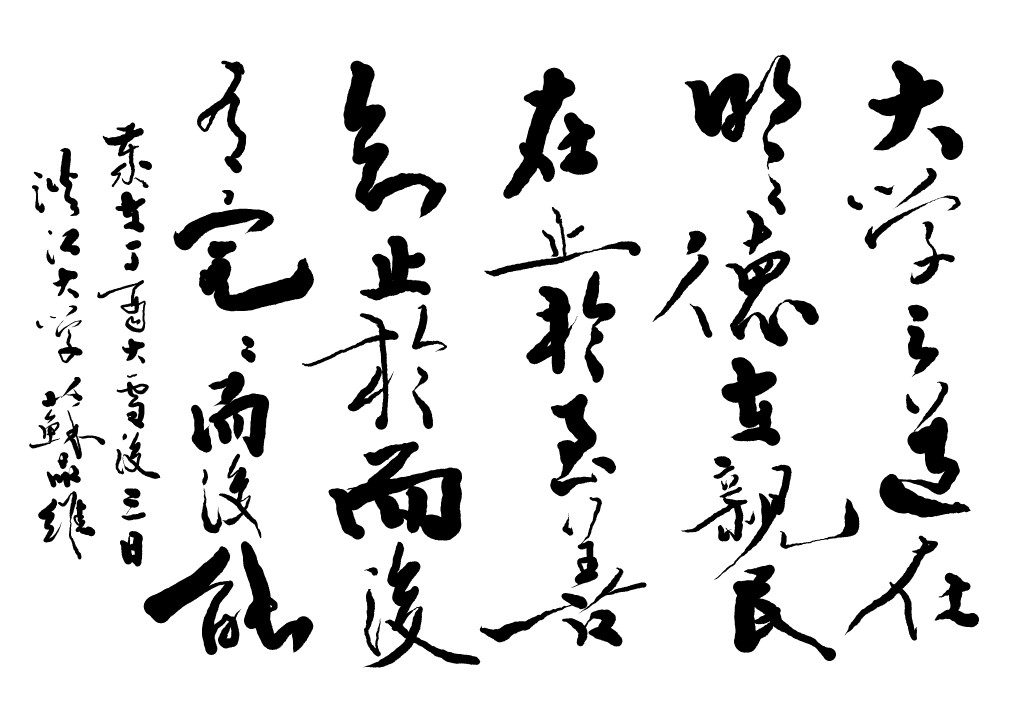 大学之道在
明〻德在親民
在止於至善
知止於而後
有定〻而後能
歲在丁酉大雪後三日
淡江大学 蘇品維